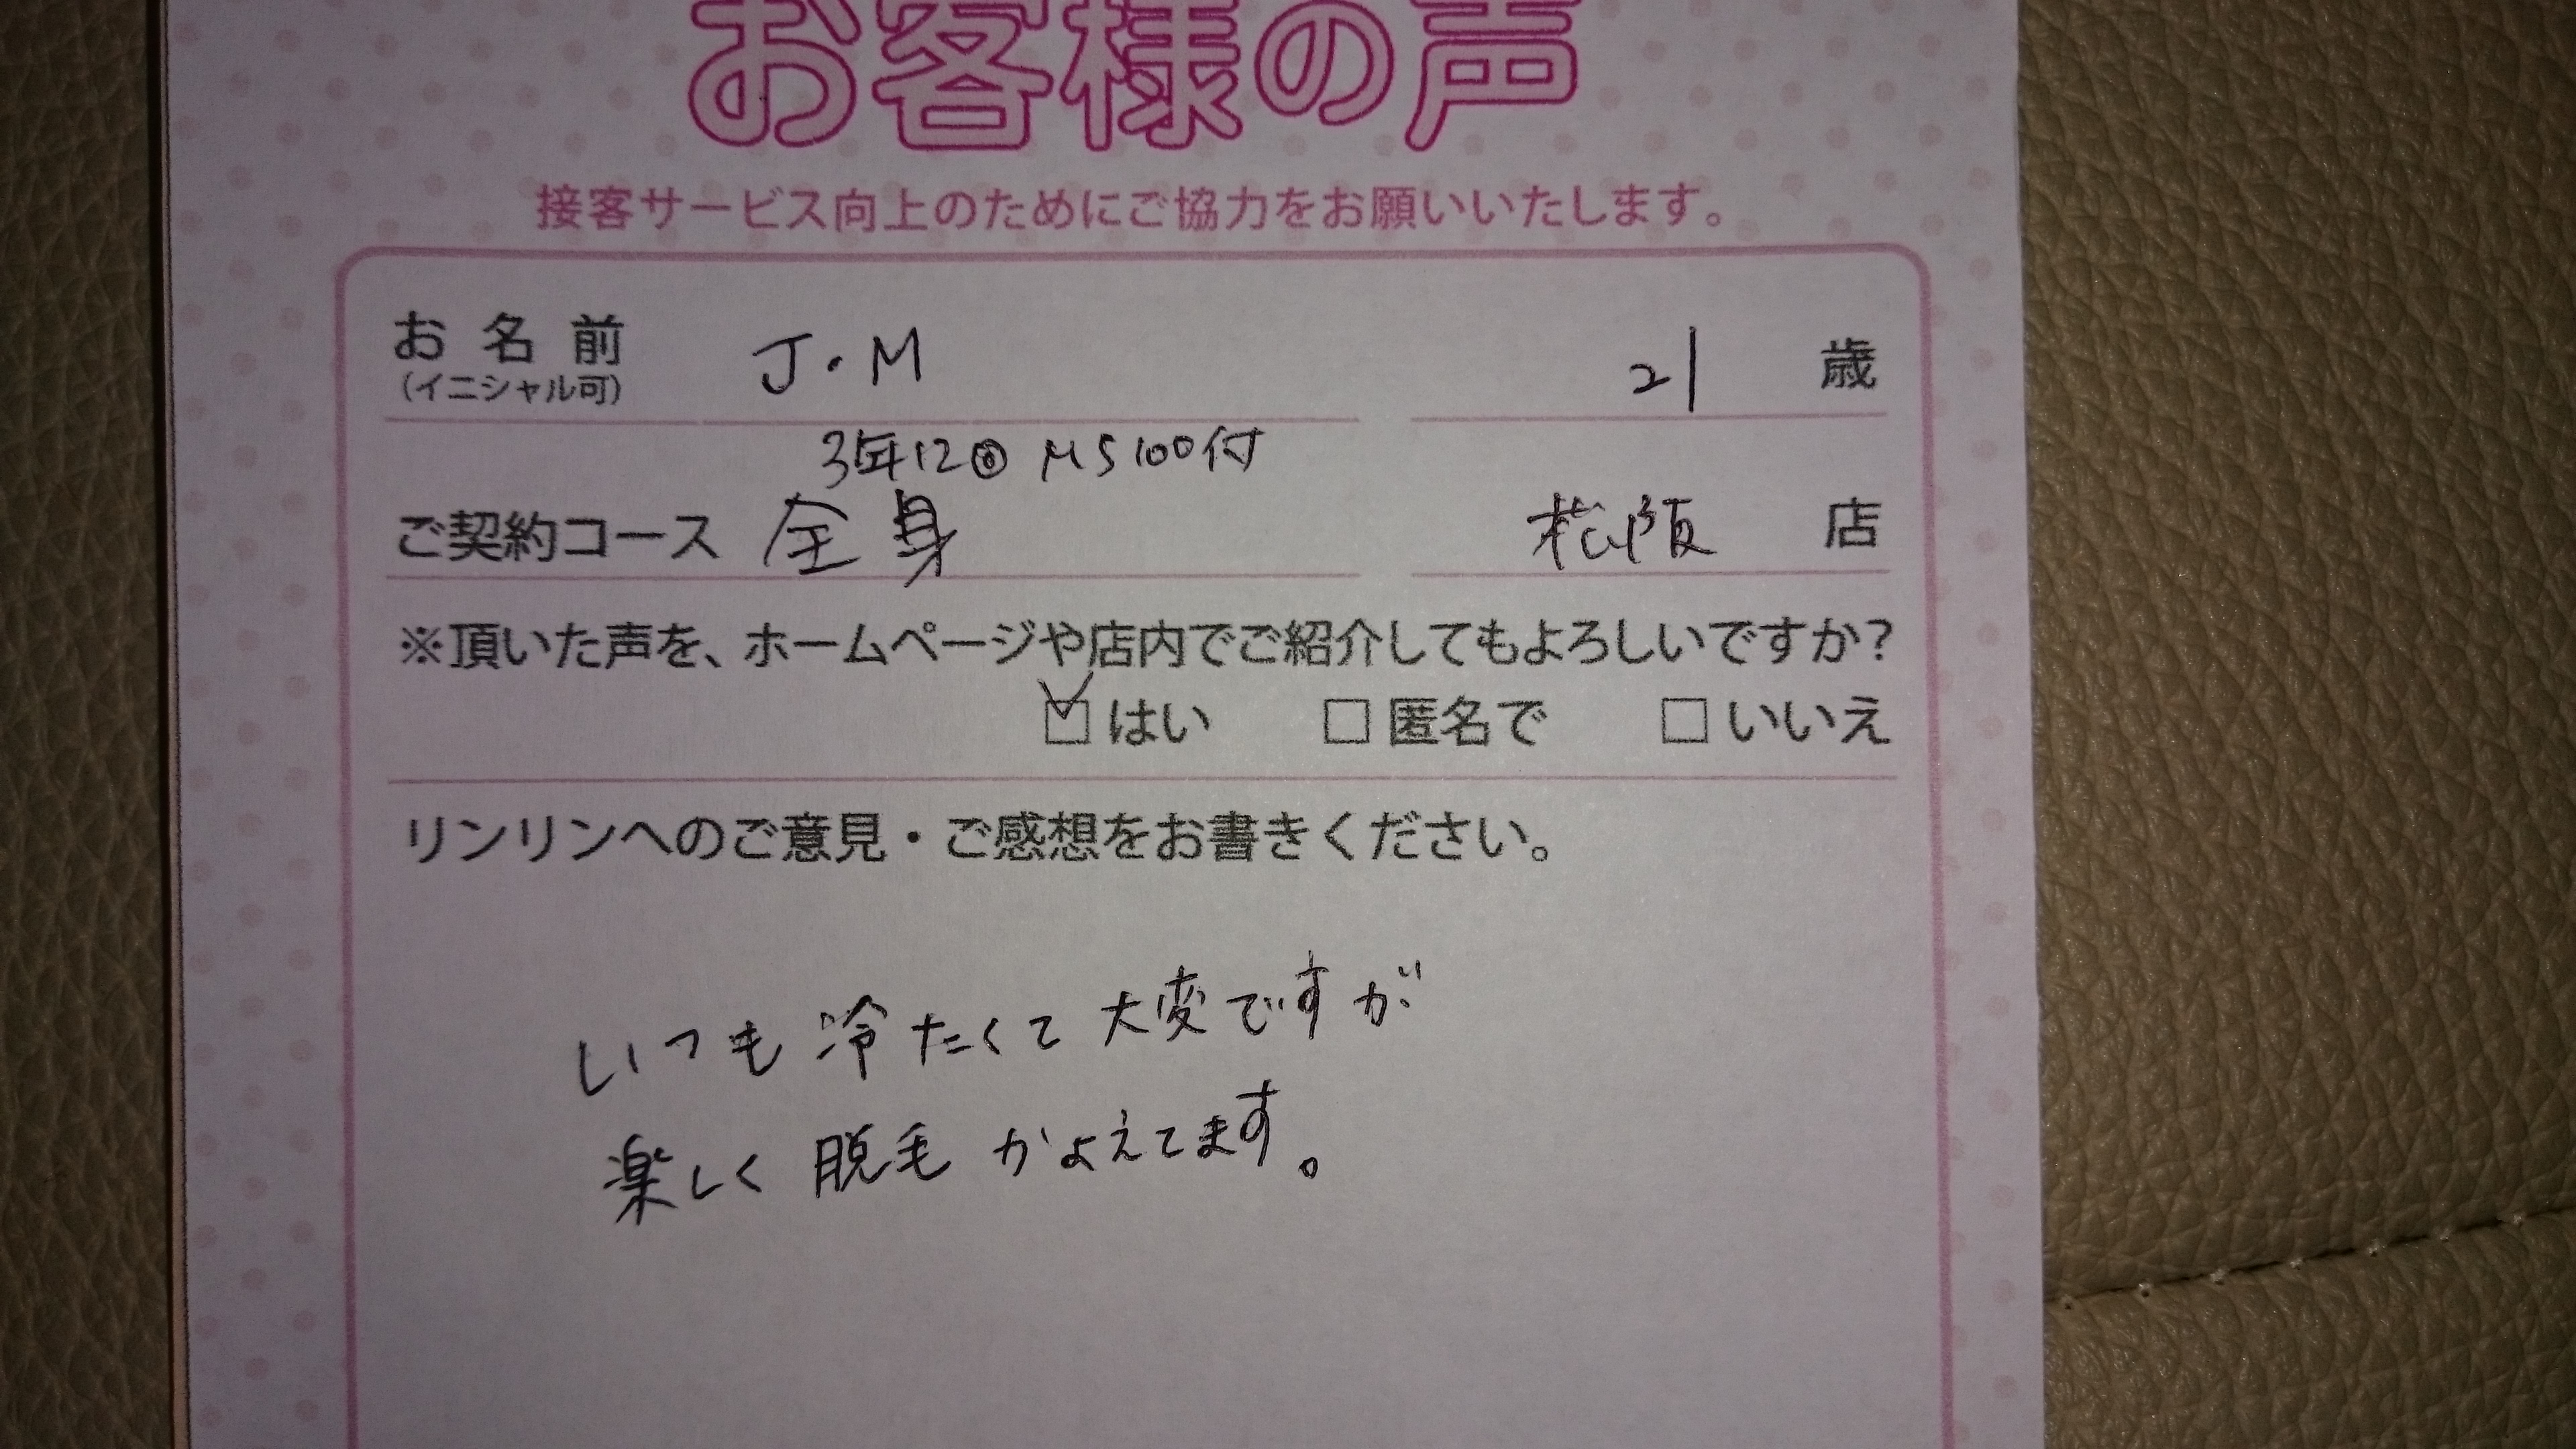 お客様の声
接客サービス向上のためにご協力をお願いいたします。
お名前 J・M 21 歳
(イニシャル可)
3年12回 MS100付
ご契約コース 全身 松阪 店
※頂いた声を、ホームページや店内でご紹介してもよろしいですか?
はい 匿名で いいえ
リンリンへのご意見・ご感想をお書きください。
いつも冷たくて大変ですが
楽しく脱毛かよえてます。